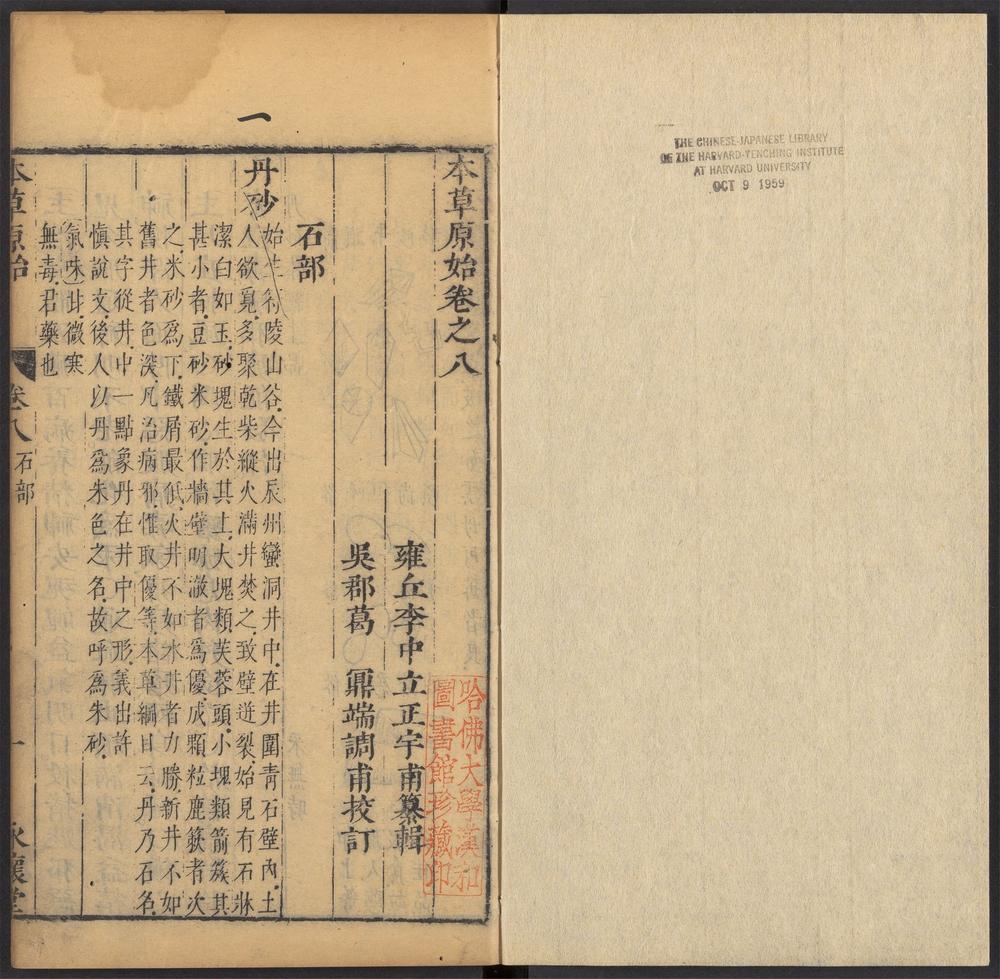 THE CHINESE-JAPANESE LIBRARY
OF THE HARVARD-YENCHING INSTITUTE
AT HARVARD UNIVERSITY
OCT 9 1959
一
本草原始卷之八
哈佛大學漢和
圖書館珍藏印
雍丘李中立正宇甫纂輯
吳郡葛　鼏端調甫挍訂
石部
丹砂
始生符陵山谷.今出辰州蠻洞井中.在井圍青石壁內.土
人欲覓.多聚乾柴縱火滿井焚之.致壁迸裂.始見有石牀
潔白如玉.砂塊生於其上.大塊類芙蓉頭.小塊類箭簇.其
甚小者.豆砂米砂.作牆壁明澈者爲優.成顆粒鹿簌者次
之.米砂爲下.鐵屑最低.火井不如水井者力勝.新井不如
舊井者色深.凡治病邪.惟取優等.本草綱目云.丹乃石名.
其字從井.中一點象丹在井中之形.義出許
愼說文.後人以丹爲朱色之名.故呼爲朱砂.
氣味甘微寒
無毒君藥也
本草原始
卷八
石部
一
永懷堂